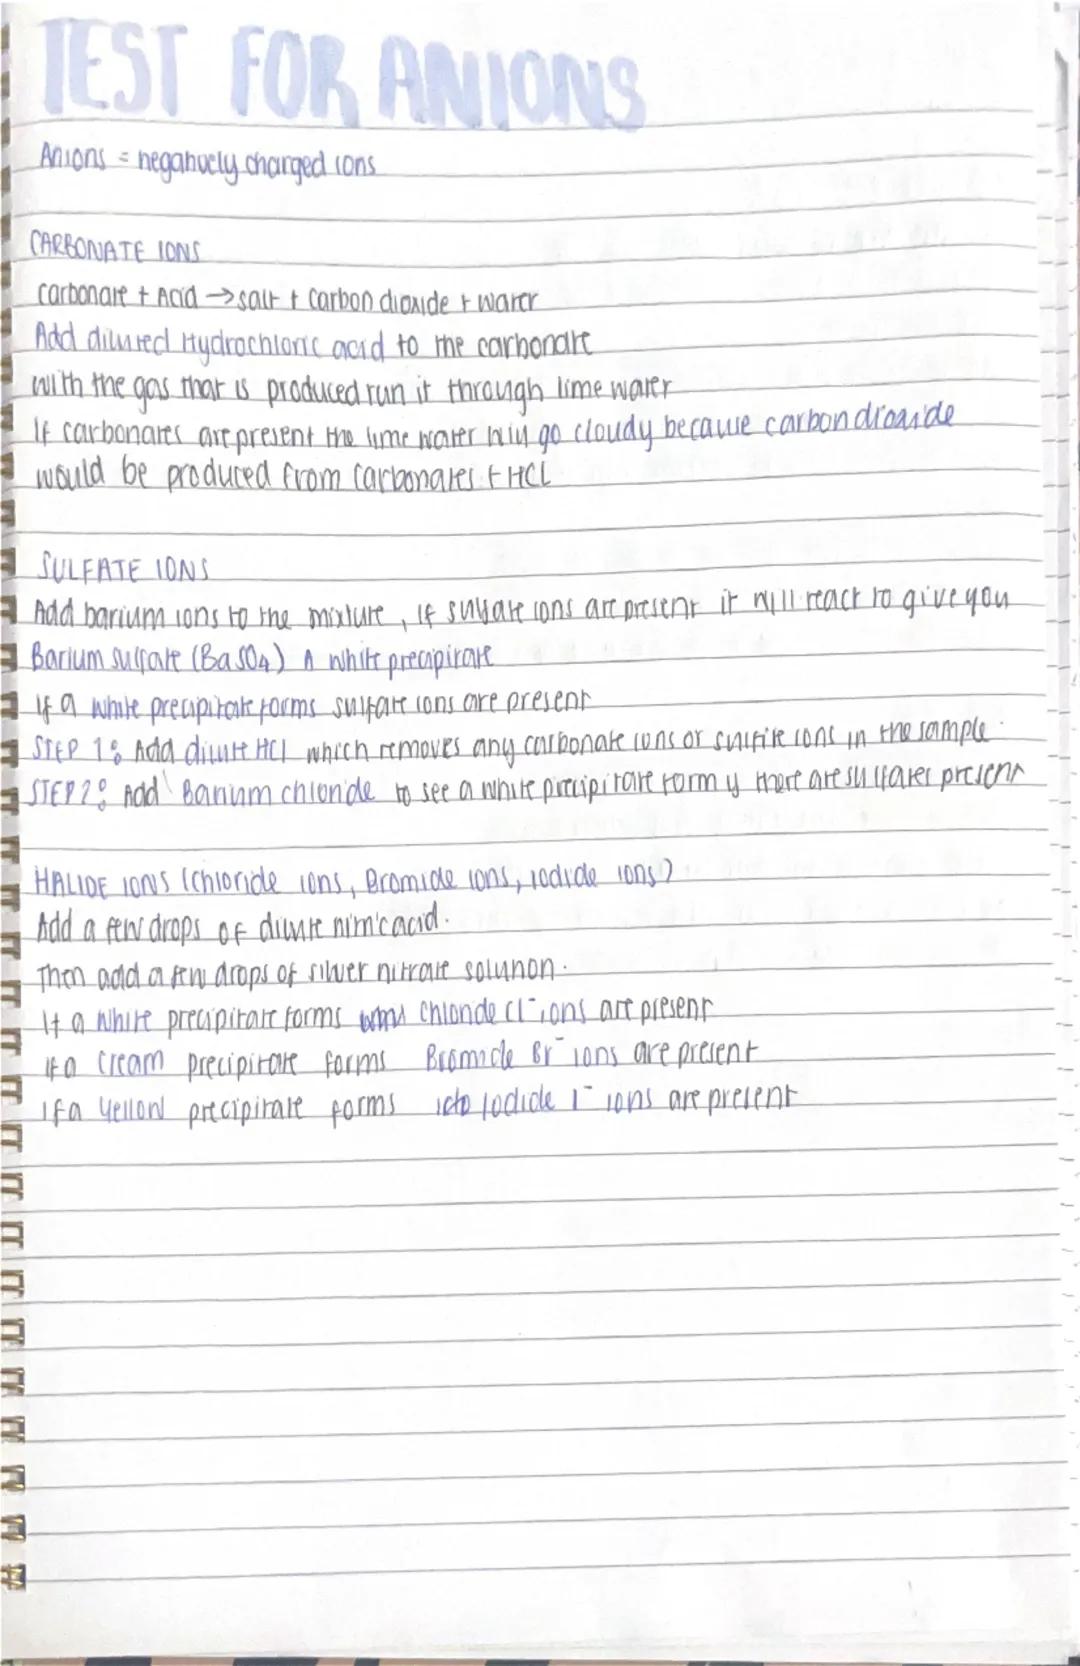 TEST FOR ANIONS
Anions = negatively charged ions
CARBONATE IONS
carbonate + Acid → salt + carbon dioxide + water
Add diluted Hydrochloric acid to the carbonate
with the gas that is produced run it through lime water
If carbonates are present the lime water will go cloudy because carbon dioxide
would be produced from carbonates + HCL
SULFATE IONS
Add barium ions to the mixture, if sulfate ions are present it will react to give you
Barium sulfate (BaSO4) A white precipitate
if a white precipitate forms sulfate ions are present
STEP 1: Add dilute HCl which removes any carbonate ions or sulfite ions in the sample.
STEP 2: Add Barium chloride to see a white precipitate form if there are sulfates present
HALIDE IONS (Chloride ions, Bromide ions, iodide ions)
Add a few drops of dilute nitric acid.
Then add a few drops of silver nitrate solution.
If a white precipitate forms chloride Cl⁻ ions are present
if a cream precipitate forms Bromide Br⁻ ions are present
If a yellow precipitate forms Iodide I⁻ ions are present